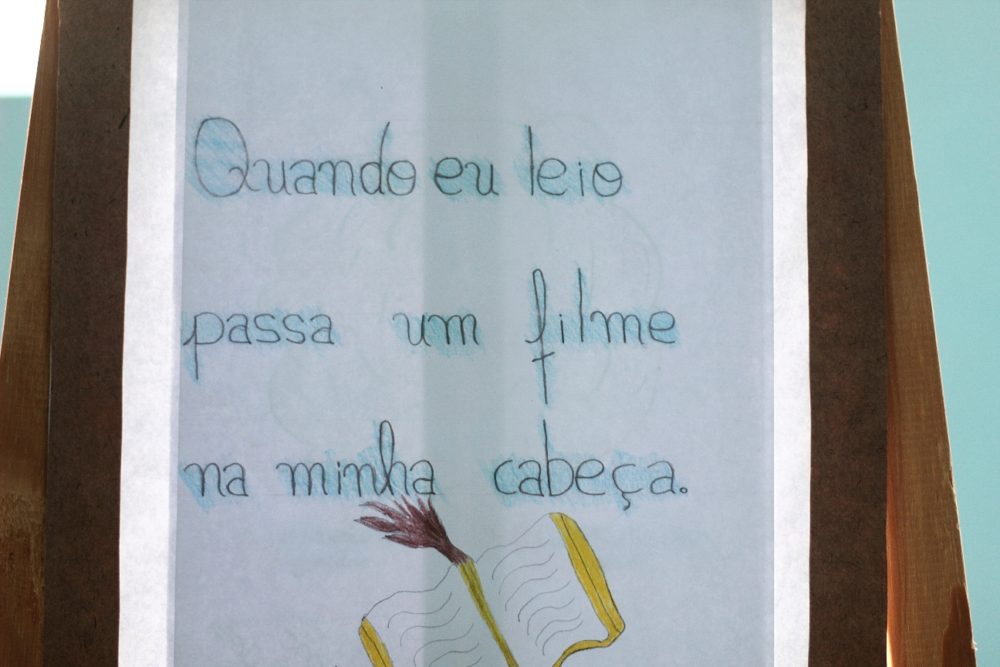 Quando eu leio
passa um filme
na minha cabeça.